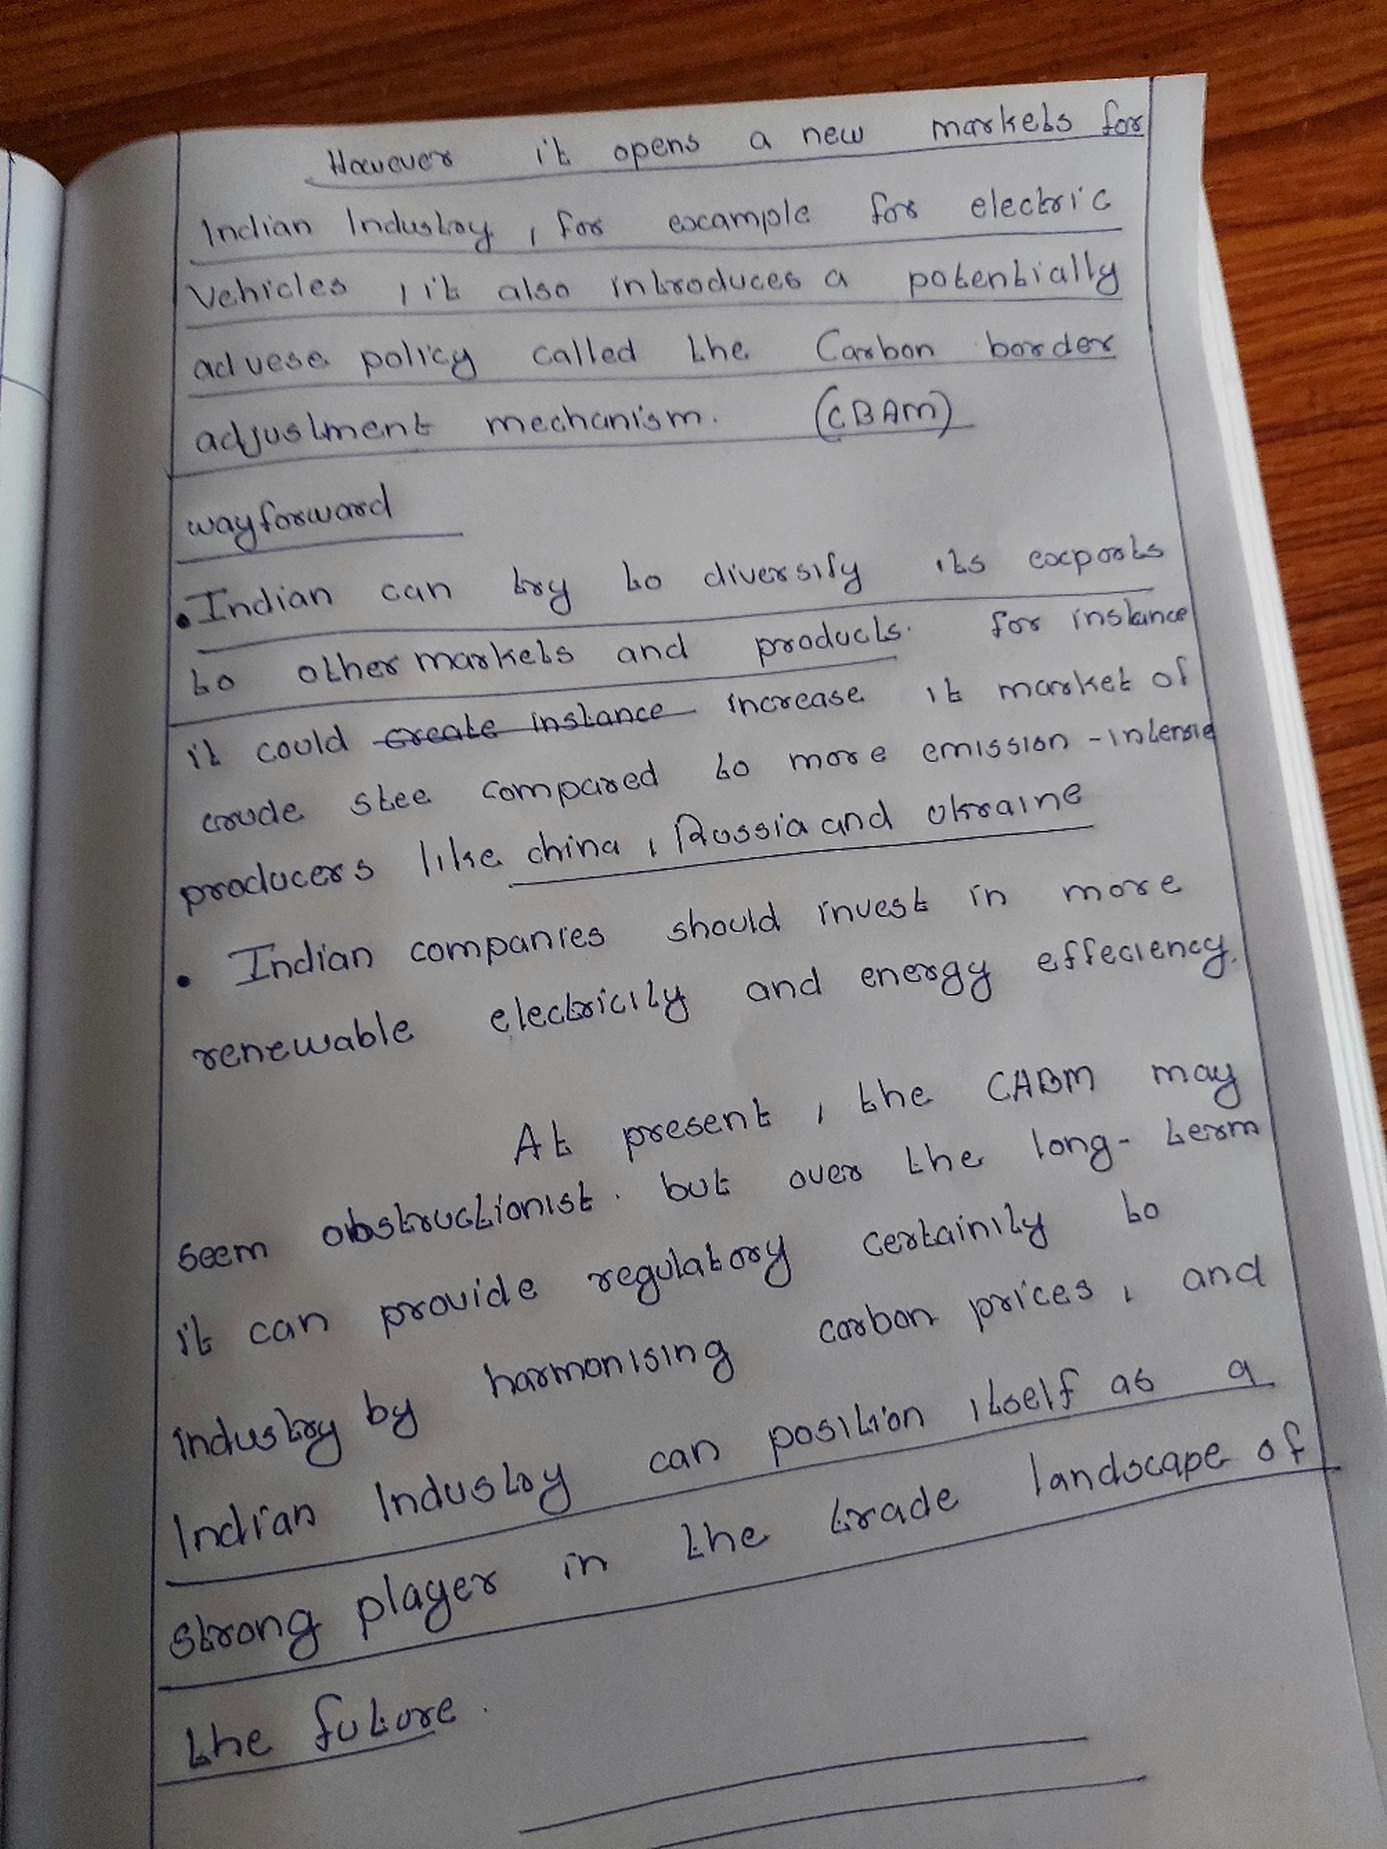 However it opens a new markets for
Indian Industry, for example for electric
Vehicles, it also introduces a potentially
advese policy called the Carbon border
adjustment mechanism. (CBAM)
wayforward
• Indian can try to diversify its exports
to other markets and products. for instance
it could create instance increase it market of
crude stee compared to more emission-intensie
producers like china, Russia and Ukraine
• Indian companies should invest in more
renewable electricity and energy effeciency.
At present, the CABM may
seem obstructionist. but over the long-term
it can provide regulatory certainity to
industry by harmonising carbon prices, and
Indian Industry can position itself as a
strong player in the trade landscape of
the future.